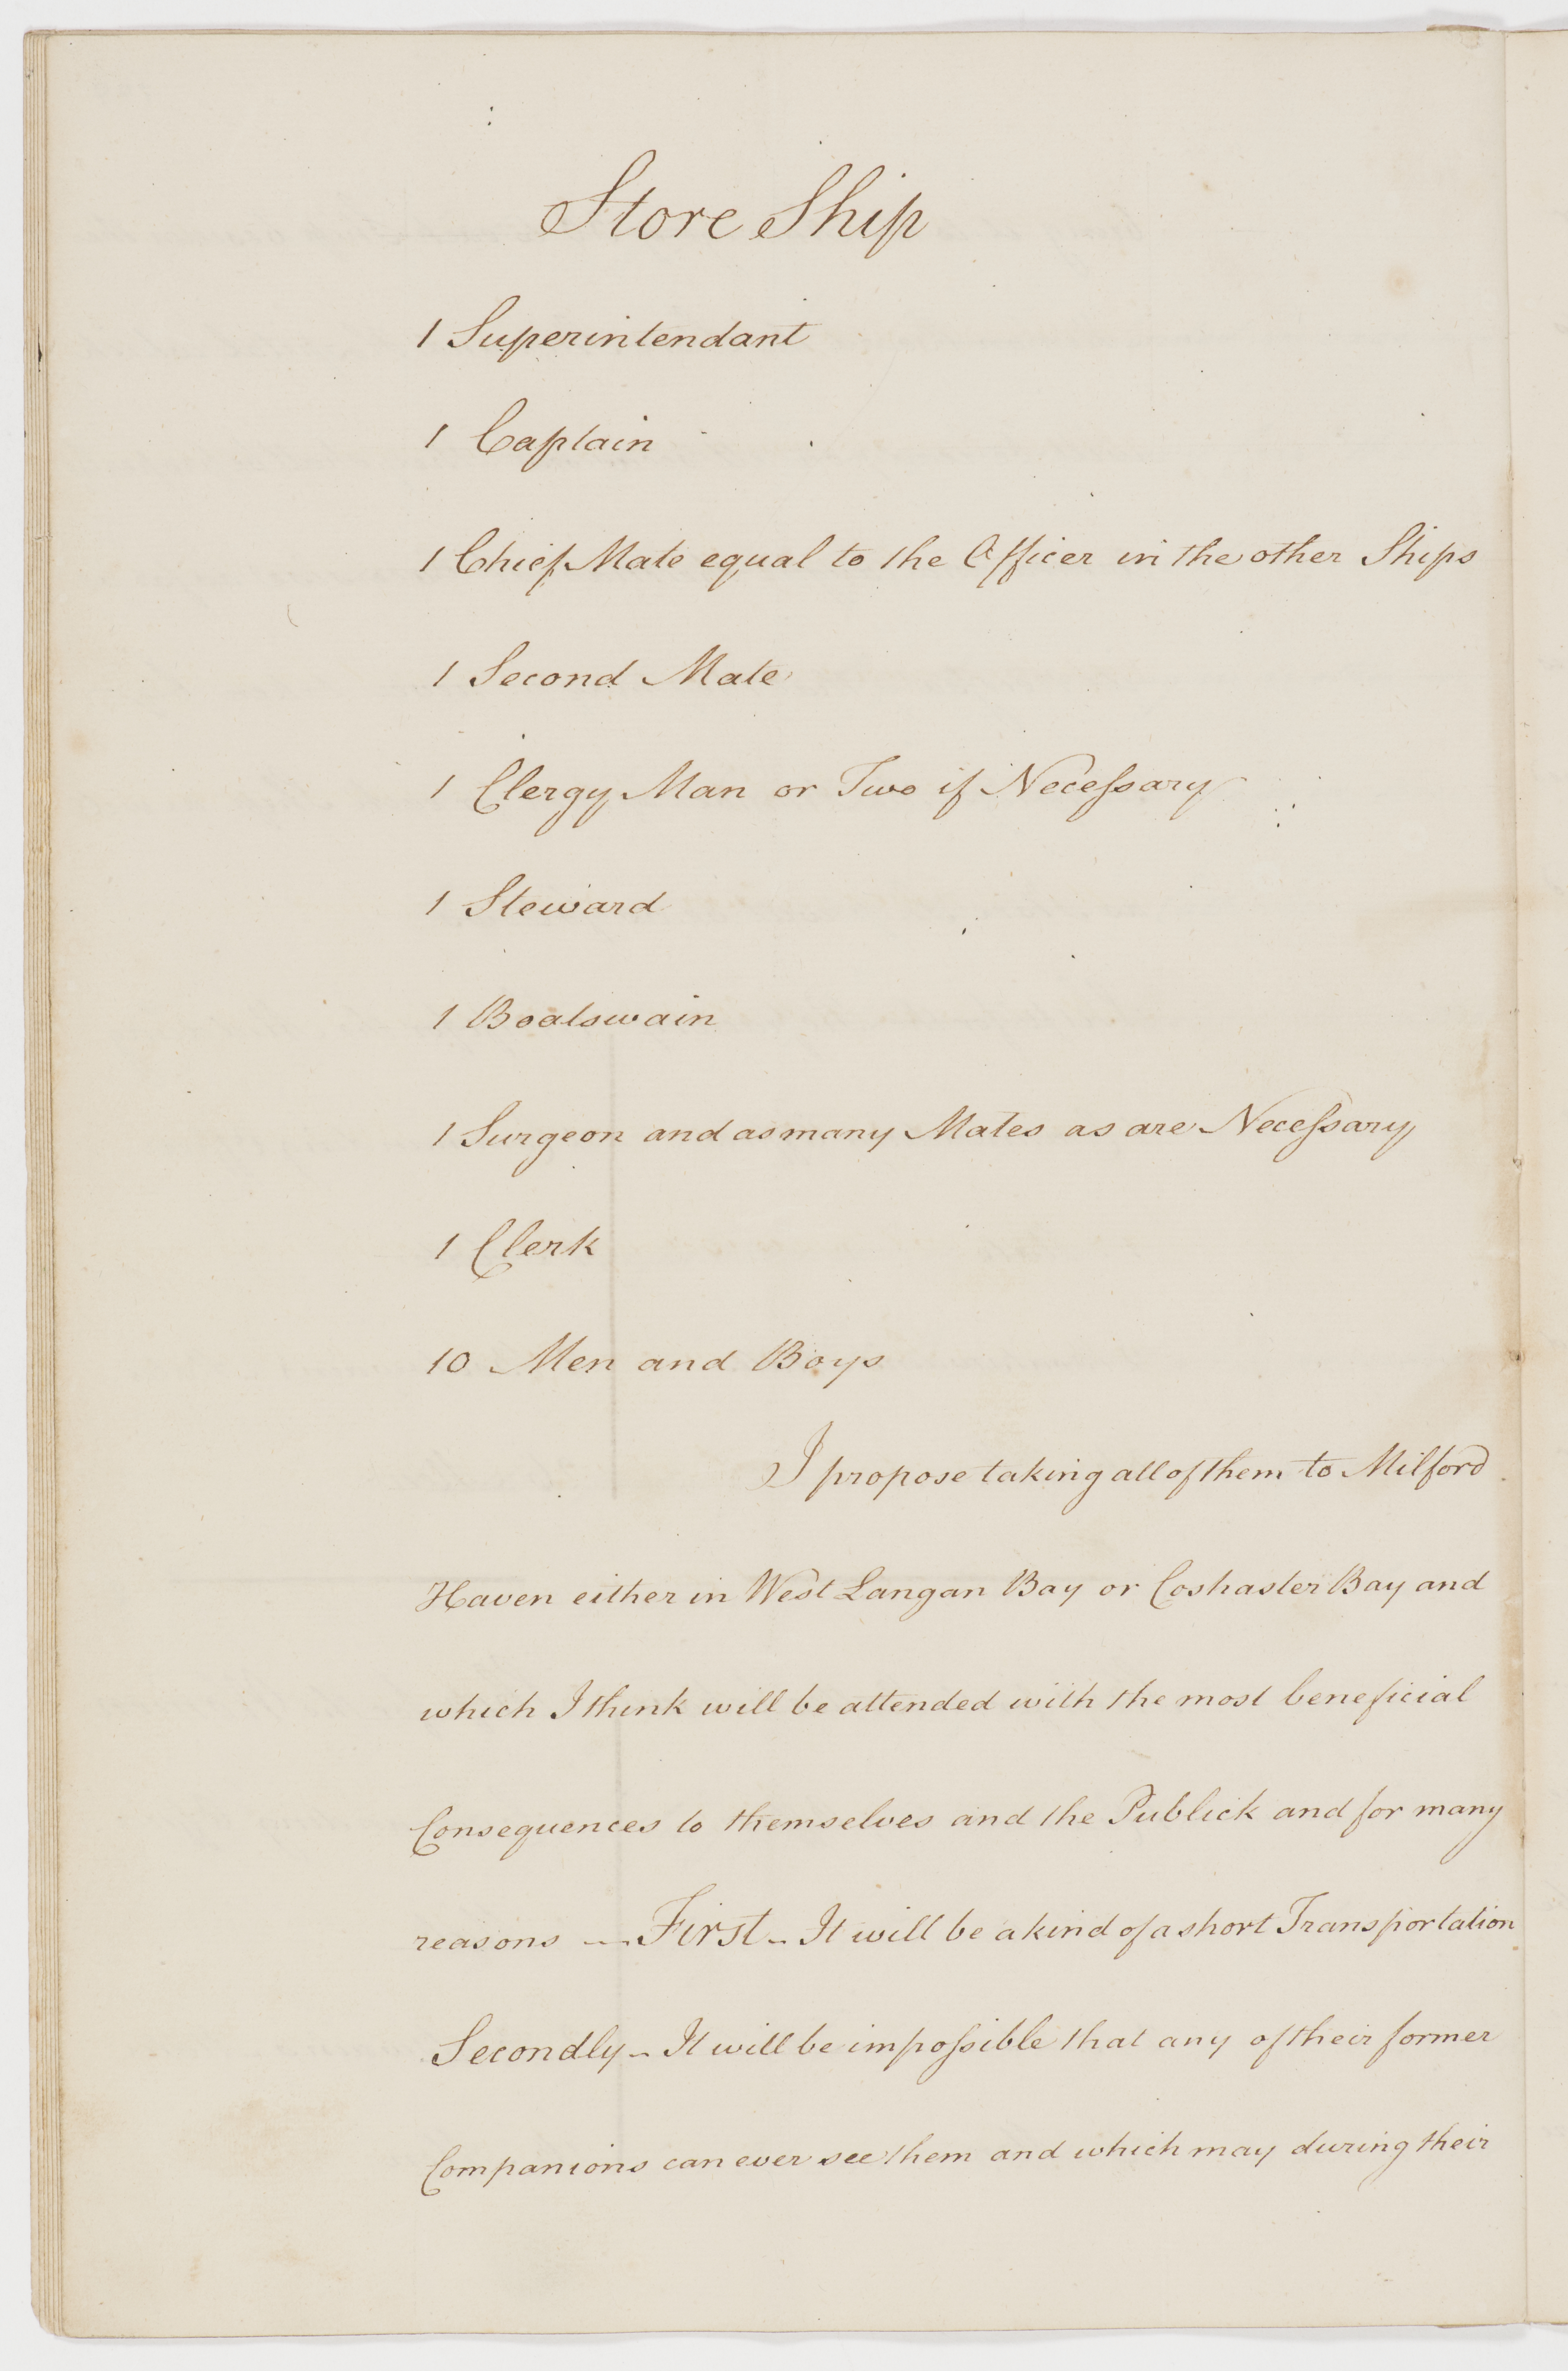 Store Ship
1 Superintendant
1 Captain
1 Chief Mate equal to the Officer in the other Ships
1 Second Mate
1 Clergy Man or Two if Necessary
1 Steward
1 Boatswain
1 Surgeon and as many Mates as are Necessary
1 Clerk
10 Men and Boys
I propose taking all of them to Milford
Haven either in West Langan Bay or Coshaster Bay and
which I think will be attended with the most beneficial
Consequences to themselves and the Publick and for many
reasons — First - It will be a kind of a short Transportation
Secondly - It will be impossible that any of their former
Companions can ever see them and which may during their